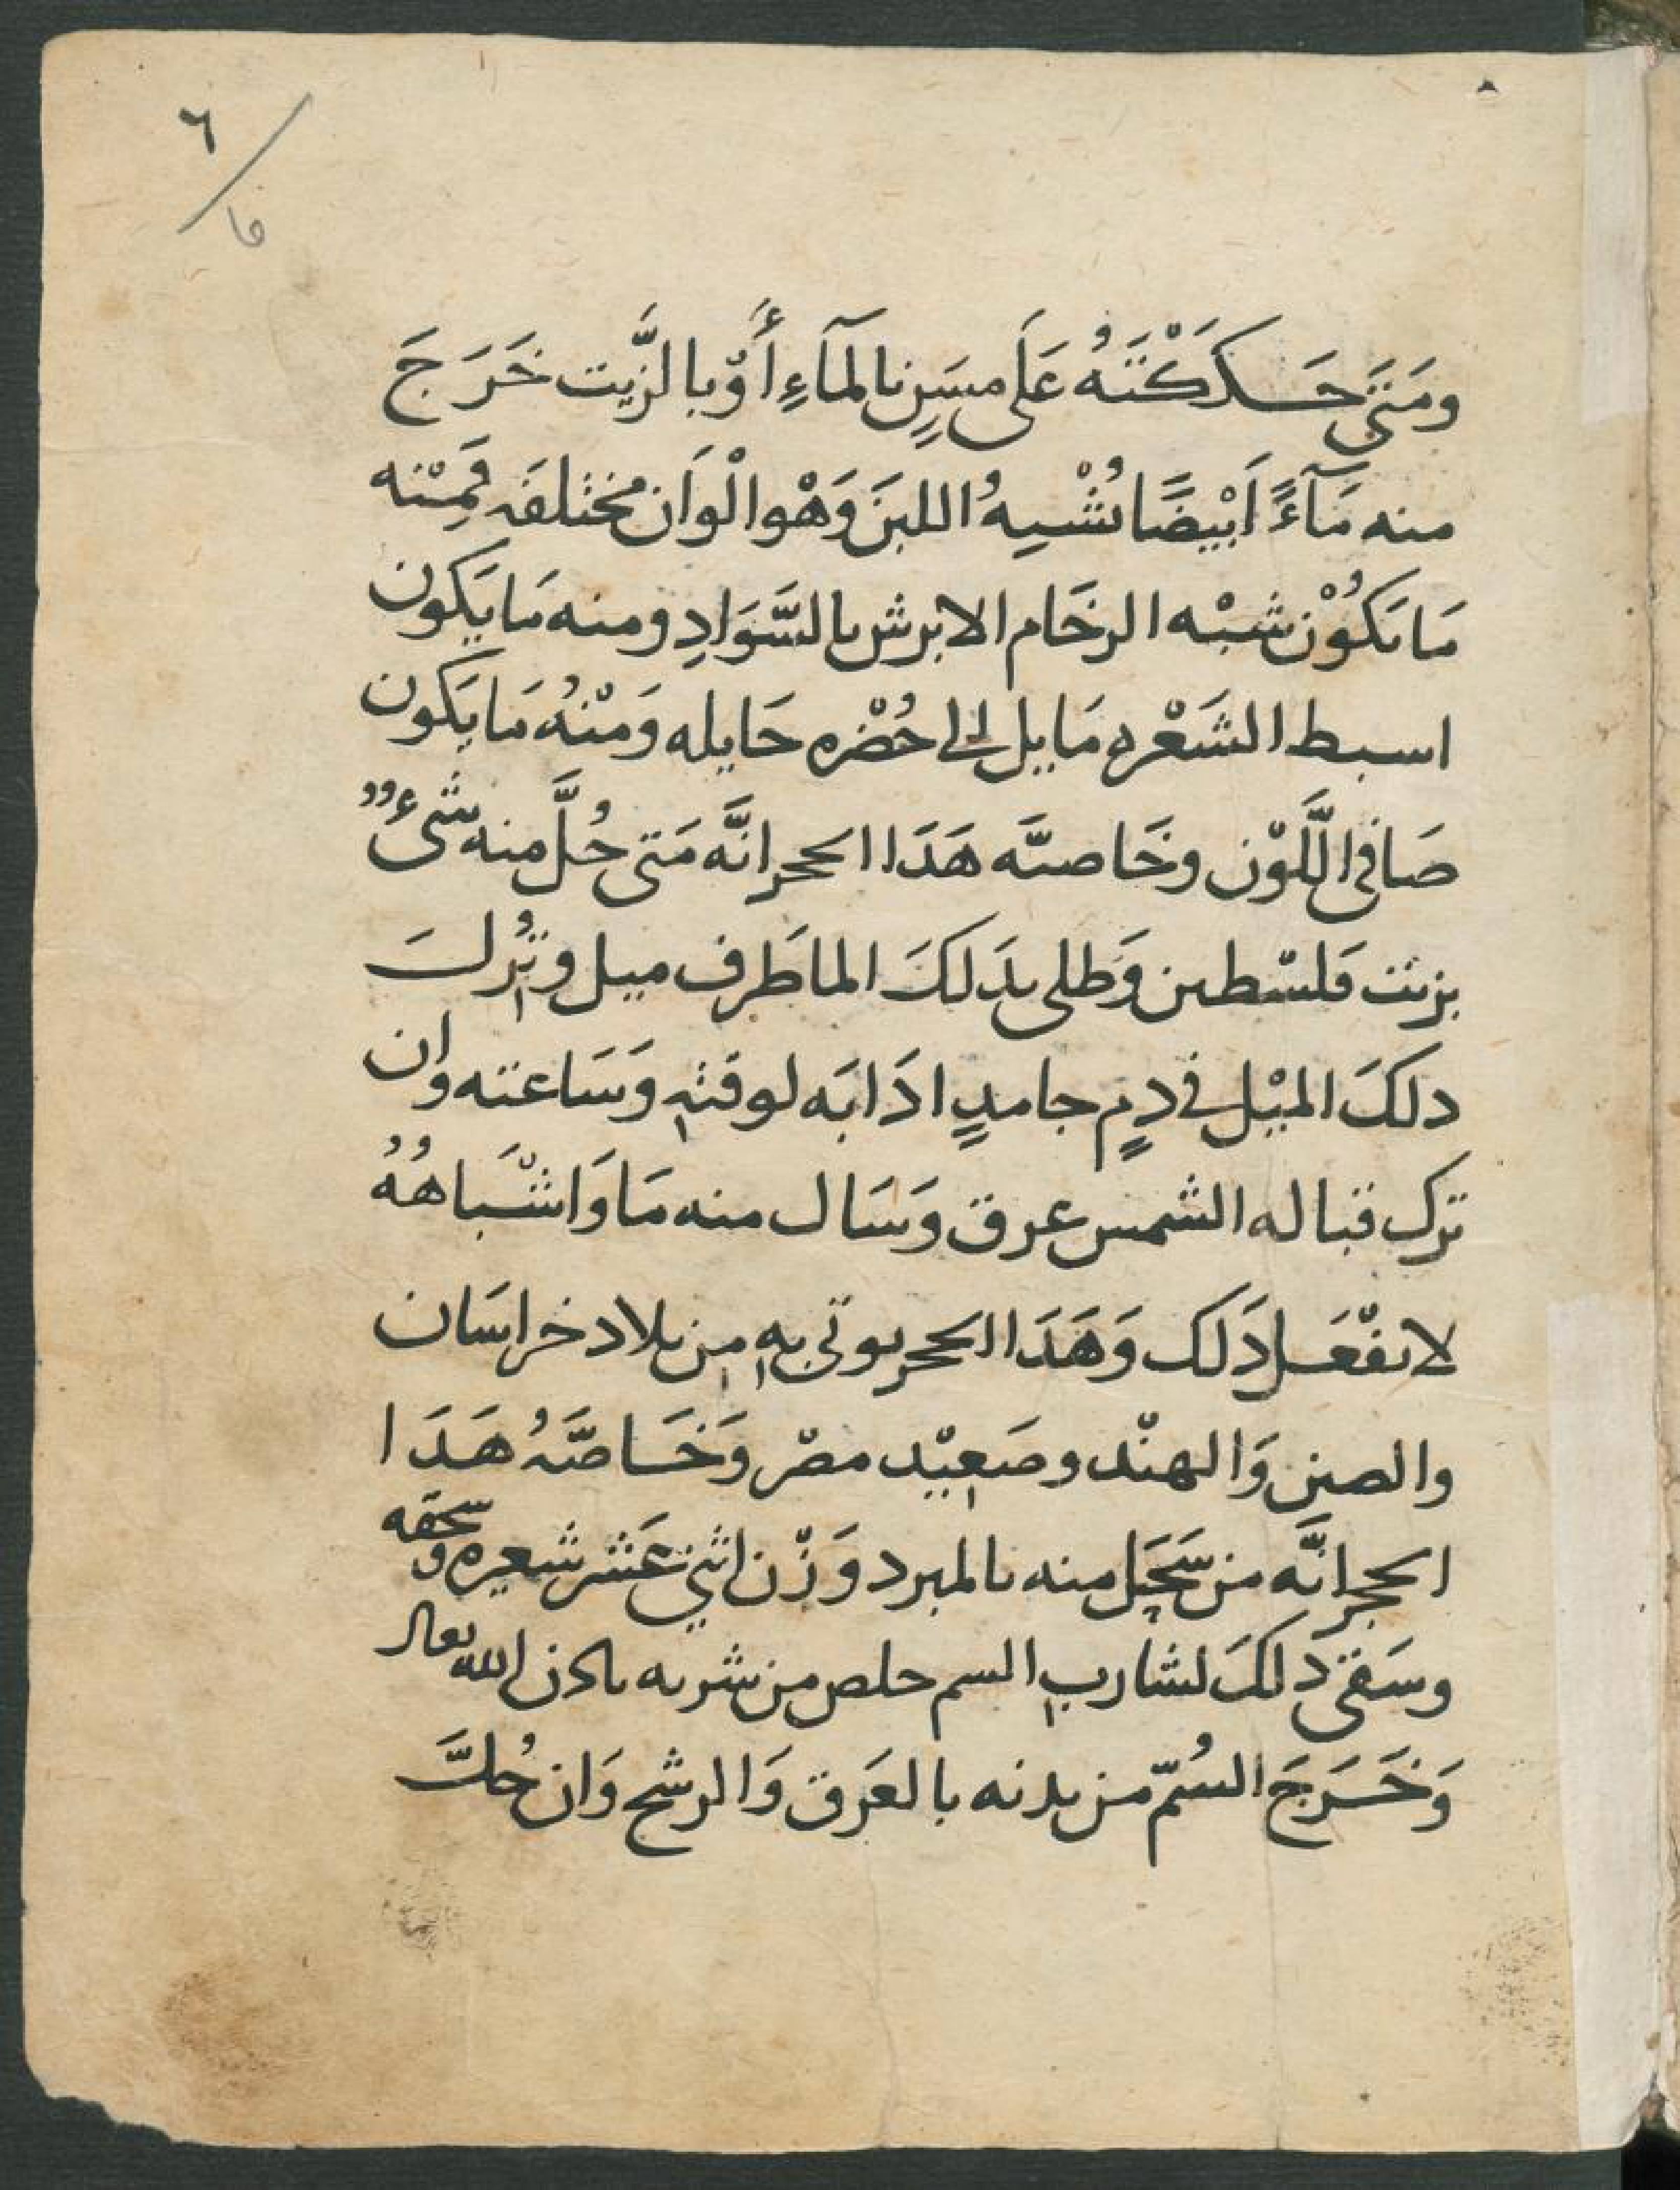 ٦
ومَتَى حَككْتَهُ عَلَى مسَنٍ بالمآءِ أَوْ بالزَّيت خَرَجَ
منه مَآءً اَبْيضًا يُشْبِهُ اللبنَ وَهْو الْوَان مختلفه فَمِنْه
مَا يَكُوْن شبْه الرخَام الابرش بالسَّوَادِ ومنه مَا يَكون
اسبط الشَعْره مَايل الى خُضْره حَايله وَمنْهُ مَا يَكون
صَافي اللَّوْن وخَاصته هَذَا الحجر انَّه مَتى حُلَّ منه شىءٌ
بزيت فلسْطين وَطلى بذَلكَ الما طَرف ميل وتُرِكَ
ذلكَ الميْل في دمٍ جامدٍ اذَابَه لوقتهِ وَسَاعته وان
ترك قباله الشمس عرق وَسَال منه مَا وَاشْبَاههُ
لا تفْعَل ذَلك وَهَذَا الحجر يوتى بهِ مِن بلاد خراسَان
والصين وَالهنْد وصَعِيْد مصْر وَخَاصَّهُ هَذَا
الحجر انَّه من سَحَل منه بالمبرد وَزْن اثني عَشر شعيره وسحقه
وسَقى ذلكَ لشاربِ السم خلص من شربه باذن الله تعالى
وَخَرَجَ السُمّ من بدنه بالعَرَق وَالرشح وَان حُكَّ